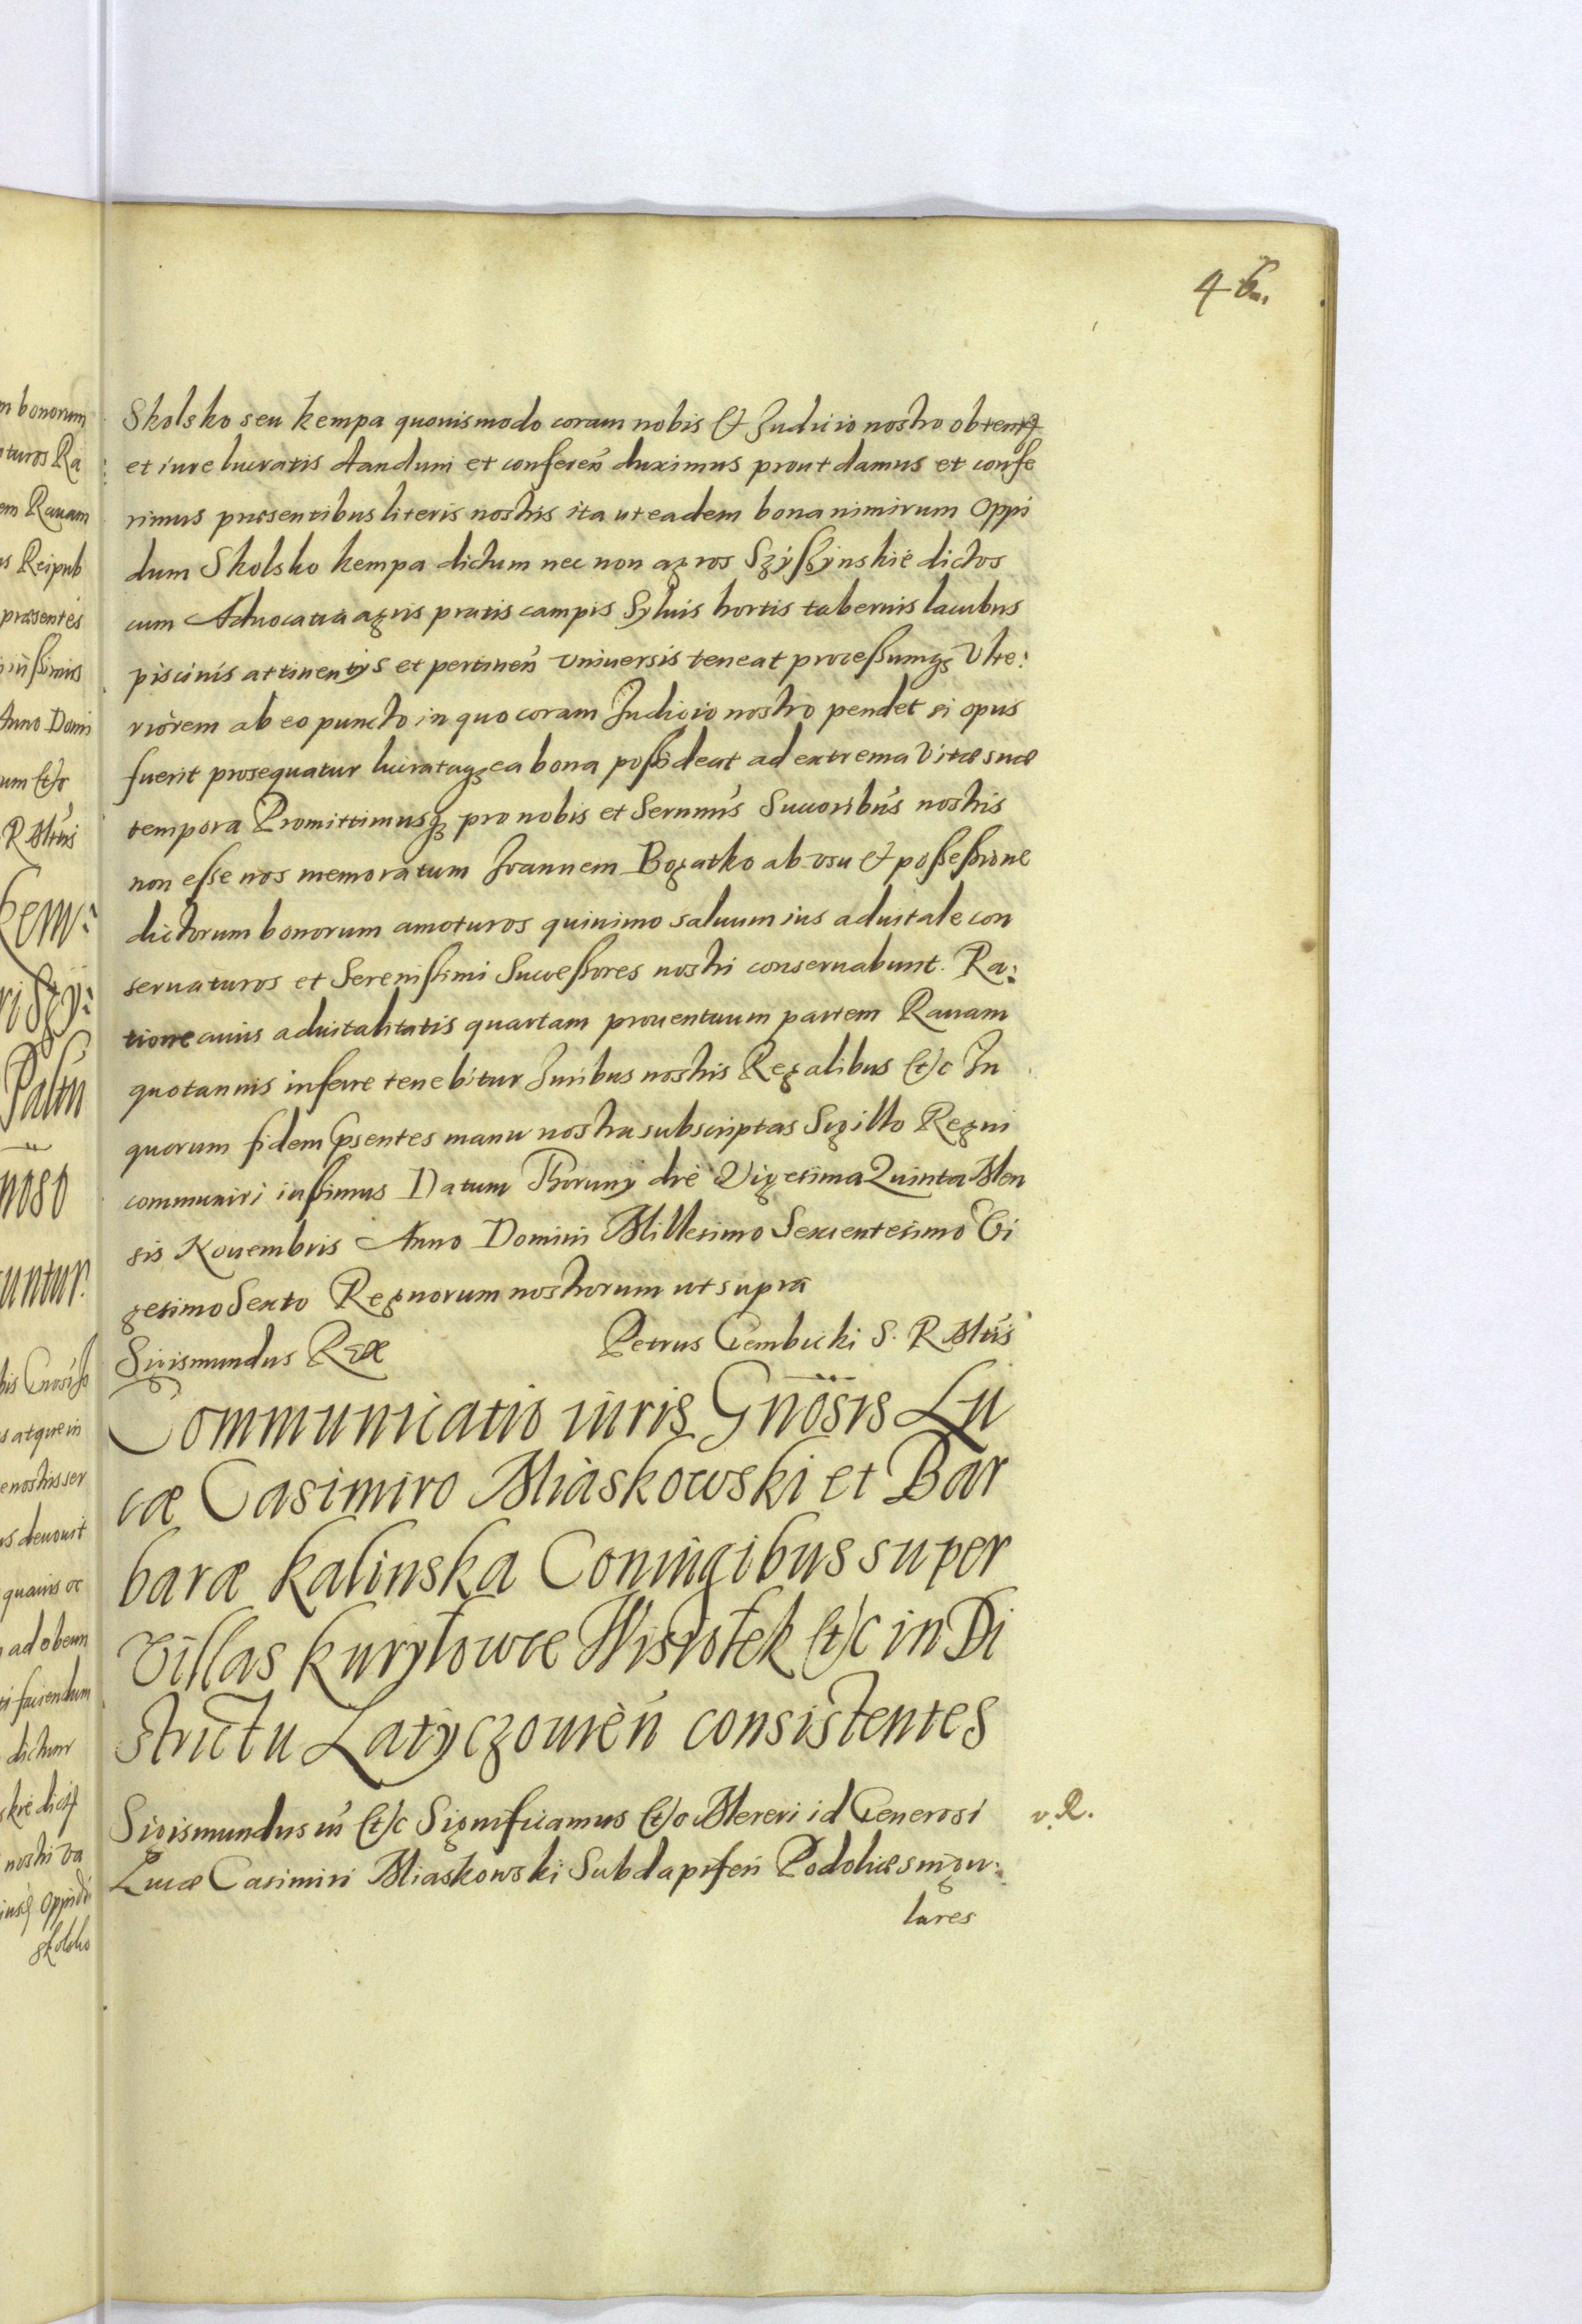 46.
Skolsko seu kempa quouismodo coram nobis & Judicio nostro obtent
et iure lucratis dandum et conferen̄ duximus prout damus et confe
rimus præsentibus literis nostris ita ut eadem bona nimirum Oppi
dum Skolsko kempa dictum nec non agros dictos
cum Aduocatia agris pratis campis Syluis hortis tabernis lacubus
piscinis attinentijs et pertinen̄ Vniuersis teneat processumqꝫ Vlte:
riorem ab eo puncto in quo coram Judicio nostro pendet si opus
fuerit prosequatur lucrataqꝫ ea bona possideat ad extrema Vitæ suæ
tempora Promittimusqꝫ pro nobis et Serenmis Succoribus nostris
non esse nos memoratum Joannem Bogatko ab vsu & possessione
dictorum bonorum amoturos quinimo saluum ius aduitale con
seruaturos et Serenissimi Successores nostri conseruabunt. Ra:
tione cuius aduitalitatis quartam prouentuum partem Rauam
quotannis inferre tenebitur Juribus nostris Regalibus &c In
quorum fidem p̄sentes manu nostra subscriptas Sigillo Regni
communiri iussimus Datum Thoruny die Vigesima Quinta Men
sis Nouembris Anno Domini Millesimo Sexcentesimo Vi
gesimo Sexto Regnorum nostrorum ut supra
Sigismundus Rex Petrus Gembicki S. R Mtis
Communicatio iuris Gnōsis Lu
cæ Casimiro Miaskowski et Bar
baræ kalinska Coniugibus super
Villas kuryłowce Wisiołek &c in Di
strictu Latyczouien̄ consistentes
Sigismundus iii &c Significamus &c Mereri id Generosi v. R.
Lucæ Casimiri Miaskowski Subdapiferi Podoliæ singu:
lares
m bonorum
turos Ra
em Rauam
s Reipub
præsentes
iussimus
Anno Domi
um &c
R Mtis
kem:
ri Szy:
Palin
noso
untur.
s atque in
e nostris ser
s deuouit
quauis oc
ad obeun
ri faciendum
dictum
nostri va
Oppidi
skolsko